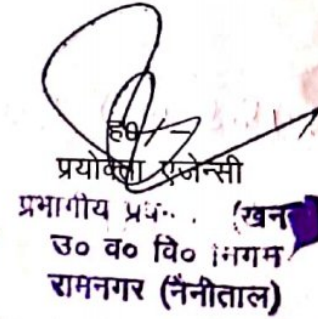 ह०/-
प्रयोक्ता एजेन्सी
प्रभागीय (खन
उ० व० वि० निगम
रामनगर (नैनीताल)